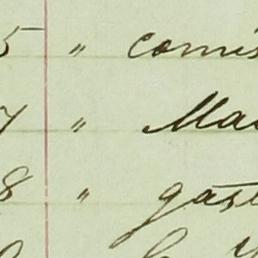 5 " comis
7 " Ma
8 " gast